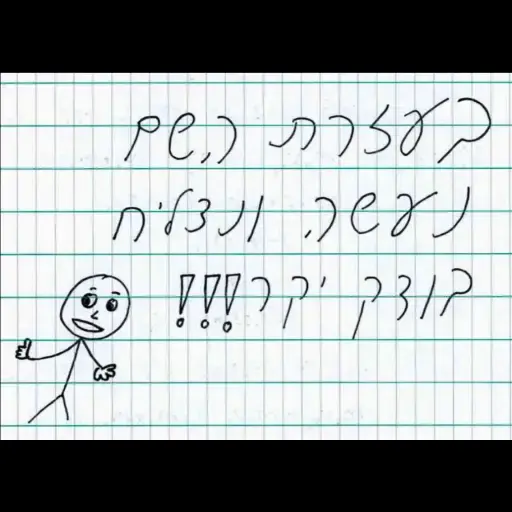 בעזרת השם
נעשה ונצליח
בודק יקר!!!